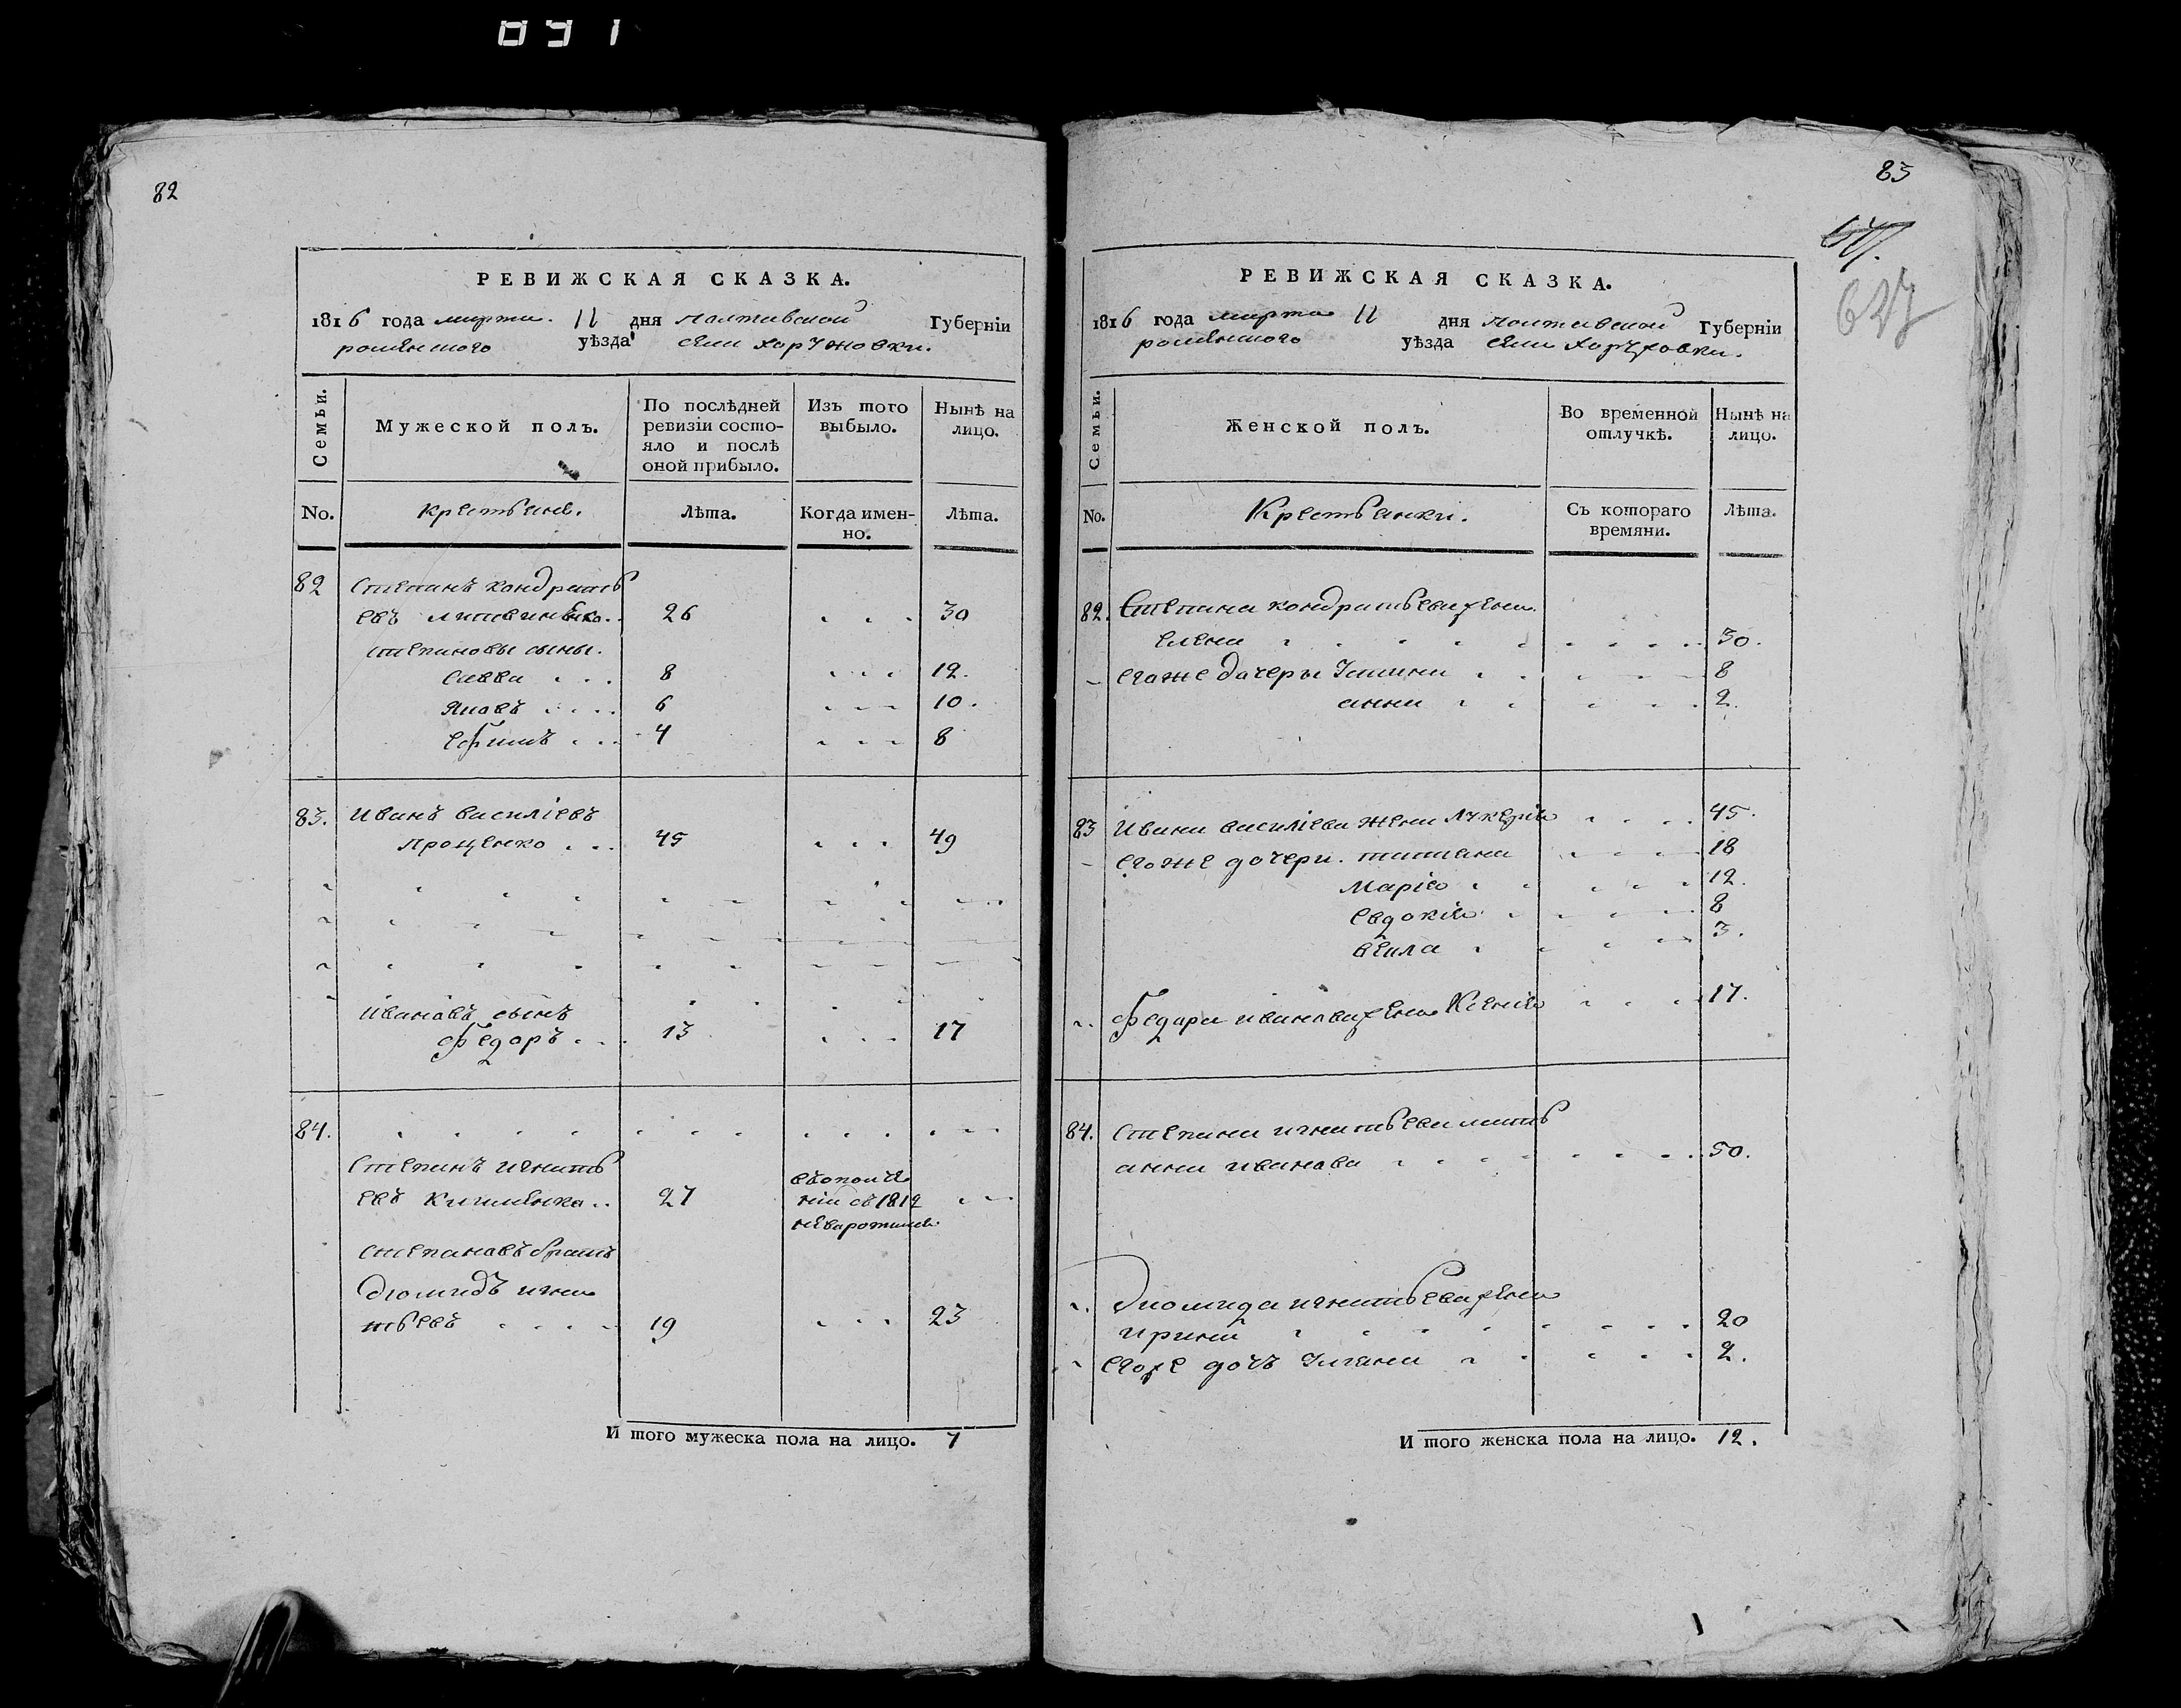 891
82
РЕВИЖСКАЯ СКАЗКА.
1816 года марта 11 дня полтавской Губерніи
роменского уѣзда села хоружовки.
Семьи.
Мужеской полъ.
По послѣдней ревизіи состо-
яло и послѣ
оной прибыло.
Изъ того выбыло.
Нынѣ на лицо.
No.
Крестьяне.
Лѣта.
Когда имен-
но.
Лѣта.
82 Степанъ кондрать
евъ литвиненко 26 30
степановы сыны.
савва 8 12.
Яковъ 6 10.
ефимъ 4 8
83. Иванъ василіевъ
проценко 45 49
ивановъ сынъ
Федоръ 13 17
84.
Степанъ игнать
евъ 27
ніи съ 1812
степановъ братъ
диомидъ игна
тьевъ 19 23
И того мужеска пола на лицо. 7
83
627
РЕВИЖСКАЯ СКАЗКА.
1816 года марта 11 дня полтавской Губерніи
роменского уѣзда села хоружовки.
Семьи.
Женской полъ.
Во временной
отлучкѣ.
Нынѣ на
лицо.
No.
Крестьянки.
Съ котораго
времяни.
Лѣта.
82. Степана кондратьева жена
елена 30.
егоже дочеры Устина 8
анна 2.
83 Ивана василіева жена Лукерія 45.
егоже дочери. татиана 18
Марія 12.
евдокія 8
3.
Федора иванова жена Ксенія 17.
84. Степана игнатьева мать
анна иванова 50.
диомида игнатьева жена
ирина 20
егоже дочь 2.
И того женска пола на лицо. 12.